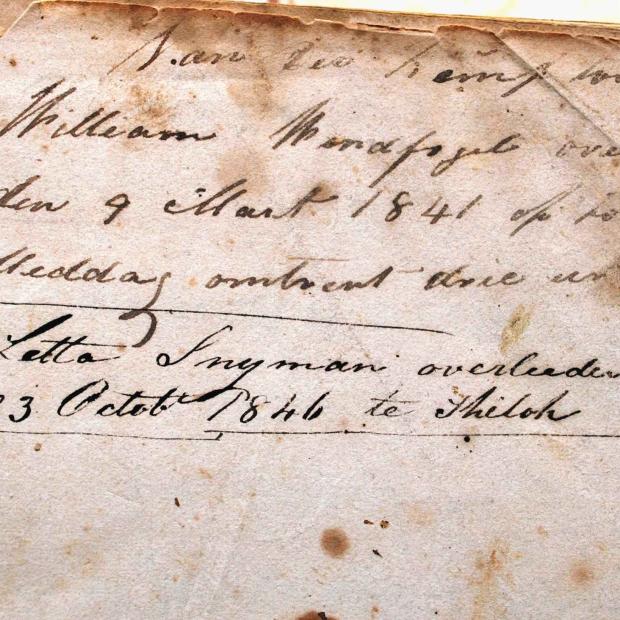 Van der Kemp
William Windfogel
den 9 Maart 1841 op
Meddag omtrent drie
Letta Snyman overleeden
23 Octobr 1846 te Shiloh